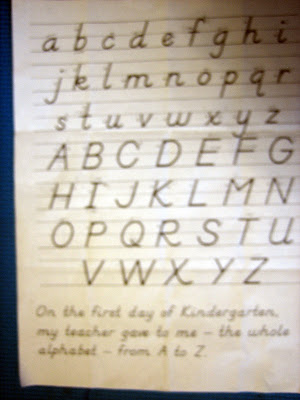 a b c d e f g h i
j k l m n o p q r
s t u v w x y z
A B C D E F G
H I J K L M N
O P Q R S T U
V W X Y Z
On the first day of Kindergarten,
my teacher gave to me – the whole
alphabet – from A to Z.